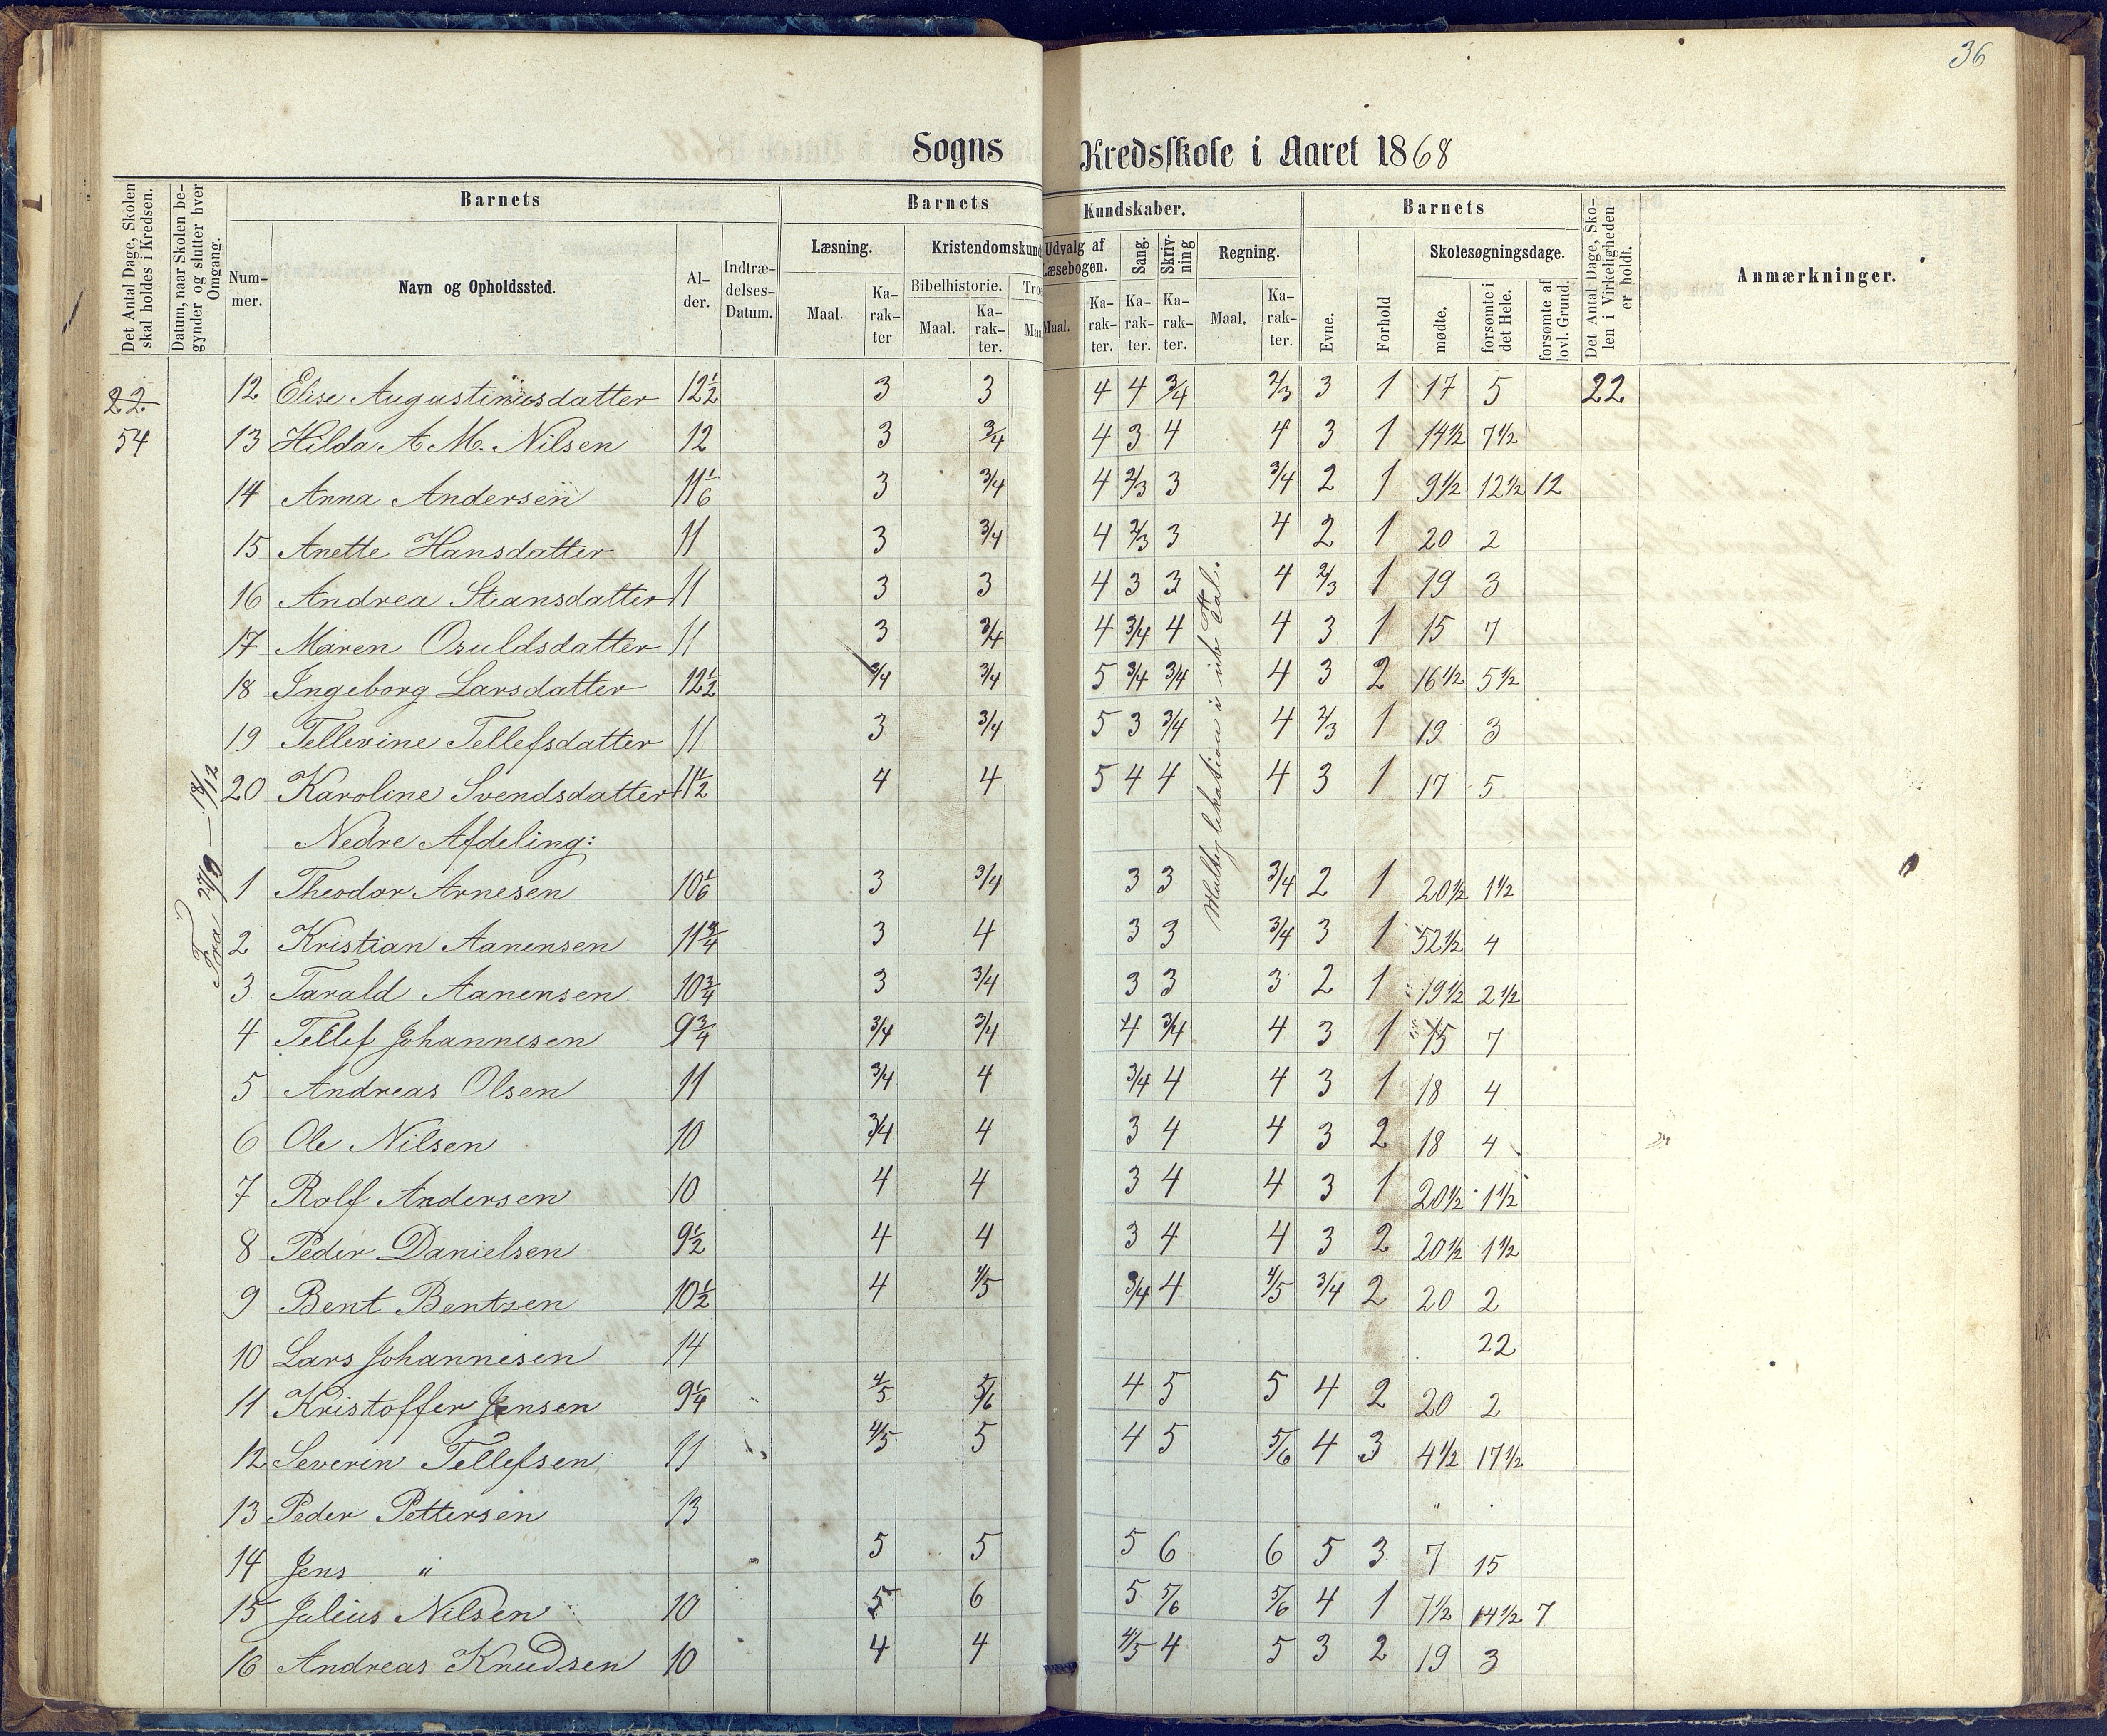 36
Sogns Kredsskole i Aaret 1868
Det Antal Dage, Skolen skal holdes i Kredsen.
Datum, naar Skolen begynder og slutter hver Omgang.
Barnets
Barnets
Kundskaber.
Barnets
Det Antal Dage, Skolen i Virkeligheden er holdt.
Anmærkninger.
Nummer.
Navn og Opholdssted.
Alder.
Indtrædelses-Datum.
Læsning.
Kristendomskund
Udvalg af Læsebogen.
Sang.
Skrivning
Regning.
Evne.
Forhold
Skolesøgningsdage.
Bibelhistorie.
Troe
Maal.
Karakter
Maal.
Karakter.
Maal
Maal.
Karakter.
Karakter.
Karakter.
Maal.
Karakter.
mødte.
forsømte i det Hele.
forsømte af lovl. Grund.
22
54
Fra 27/9 — 18/12
Multiplikation i ube Tal.
12 Elise Augustinusdatter 12 1/2 3 3 4 4 3/4 2/3 3 1 17 5 22
13 Hilda A. M. Nilsen 12 3 3/4 4 3 4 4 3 1 14 1/2 7 1/2
14 Anna Andersen 11 1/6 3 3/4 4 2/3 3 3/4 2 1 9 1/2 12 1/2 12
15 Anette Hansdatter 11 3 3/4 4 2/3 3 4 2 1 20 2
16 Andrea Stiansdatter 11 3 3 4 3 3 4 2/3 1 19 3
17 Maren Osuldsdatter 11 3 3/4 4 3/4 4 4 3 1 15 7
18 Ingeborg Larsdatter 12 1/2 3/4 3/4 5 3/4 3/4 4 3 2 16 1/2 5 1/2
19 Tellevine Tellefsdatter 11 3 3/4 5 3 3/4 4 2/3 1 19 3
20 Karoline Svendsdatter 11 1/2 4 4 5 4 4 4 3 1 17 5
Nedre Afdeling:
1 Theodor Arnesen 10 1/6 3 3/4 3 3 3/4 2 1 20 1/2 1 1/2
2 Kristian Aanensen 11 3/4 3 4 3 3 3/4 3 1 52 1/2 4
3 Tarald Aanensen 10 3/4 3 3/4 3 3 3 2 1 19 1/2 2 1/2
4 Tellef Johannesen 9 3/4 3/4 3/4 4 3/4 4 3 1 15 7
5 Andreas Olsen 11 3/4 4 3/4 4 4 3 1 18 4
6 Ole Nilsen 10 3/4 4 3 4 4 3 2 18 4
7 Rolf Andersen 10 4 4 3 4 4 3 1 20 1/2 1 1/2
8 Peder Danielsen 9 1/2 4 4 3 4 4 3 2 20 1/2 1 1/2
9 Bent Bentzen 10 1/2 4 4/5 3/4 4 4/5 3/4 2 20 2
10 Lars Johannesen 14 22
11 Kristoffer Jensen 9 1/4 4/5 5/6 4 5 5 4 2 20 2
12 Severin Tellefsen 11 4/5 5 4 5 5/6 4 3 4 1/2 17 1/2
13 Peder Pettersen 13 "
14 Jens " 5 5 5 6 6 5 3 7 15
15 Julius Nilsen 10 5 6 5 5/6 5/6 4 1 7 1/2 14 1/2 7
16 Andreas Knudsen 10 4 4 4/5 4 5 3 2 19 3